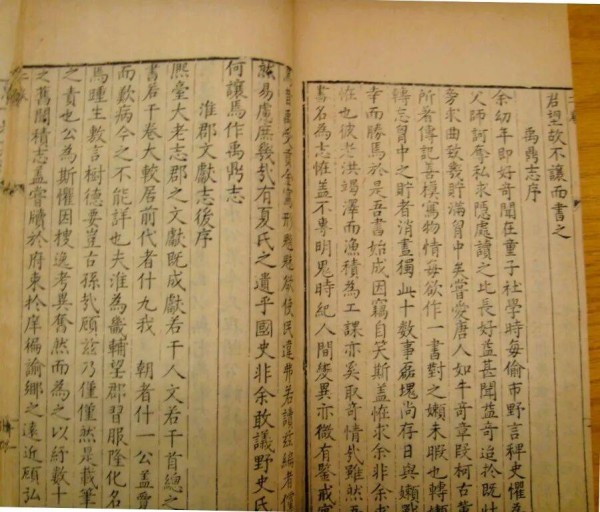 君望故不讓而書之
禹鼎志序
余幼年即好奇聞在童子社學時每偷市野言稗史懼為
父師訶奪私求隱處讀之比長好益甚聞益奇迨於既壯
旁求曲致幾貯滿胷中矣嘗愛唐人如牛奇章叚柯古
所著傳記善模寫物情每欲作一書對之嬾未暇也轉嬾
轉忘胷中之貯者消盡獨此十數事磊塊尚存日與嬾戰
幸而勝焉於是吾書始成因竊自笑斯蓋怪求余非余求
怪也彼老洪竭澤而漁積為工課亦奚取奇情哉雖然吾
書名為志怪蓋不專明鬼時紀人間變異亦微有鑒戒寓
昔禹受貢金寫形魑魅欲使民違弗若讀兹編者儻
然易慮庶幾哉有夏氏之遺乎國史非余敢議野史氏
何讓焉作禹鼎志
淮郡文獻志後序
熈臺大老志郡之文獻既成獻若干人文若干首總之
書若干卷大較居前代者什九我 朝者什一公盖覽
而歎病今之不能詳也夫淮為畿輔望郡習服隆化名
焉踵生數言樹德要豈古孫哉顧兹乃僅僅然是載筆
之責也公為斯懼因搜逸考異奮然而為之以紓數十
之舊聞積志盖嘗牘於府東於庠徧諭鄉之遠近頋弘